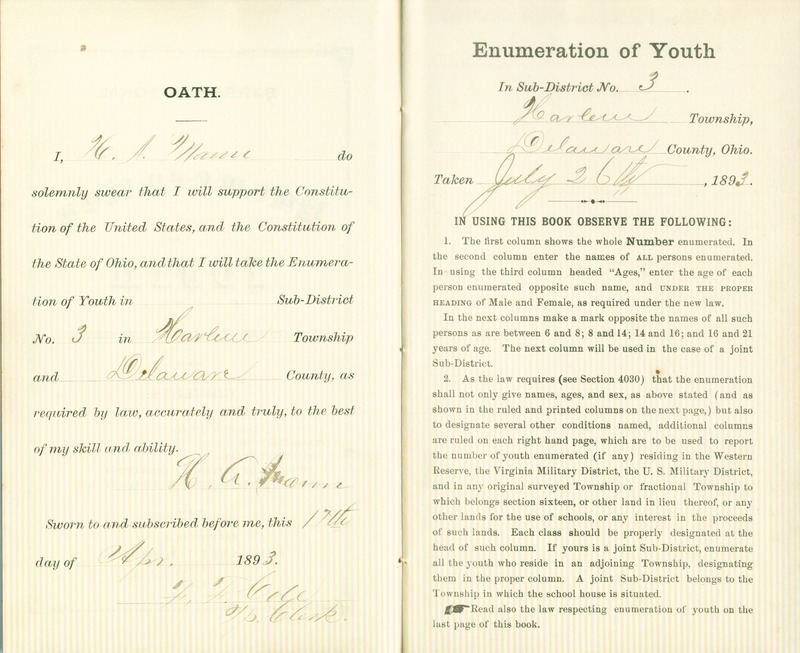 OATH.
I, H. A. Mann do
solemnly swear that I will support the Constitu-
tion of the United States, and the Constitution of
the State of Ohio, and that I will take the Enumera-
tion of Youth in Sub-District
No. 3 in Harlem Township
and Delaware County, as
required by law, accurately and truly, to the best
of my skill and ability.
H. A. Mann
Sworn to and subscribed before me, this 17th
day of Apr. 1893.
F. F. Cole
Clerk.
Enumeration of Youth
In Sub-District No. 3.
Harlem Township,
Delaware County, Ohio.
Taken July 26th, 1893.
IN USING THIS BOOK OBSERVE THE FOLLOWING:
1. The first column shows the whole Number enumerated. In
the second column enter the names of ALL persons enumerated.
In using the third column headed "Ages," enter the age of each
person enumerated opposite such name, and UNDER THE PROPER
HEADING of Male and Female, as required under the new law.
In the next columns make a mark opposite the names of all such
persons as are between 6 and 8; 8 and 14; 14 and 16; and 16 and 21
years of age. The next column will be used in the case of a joint
Sub-District.
2. As the law requires (see Section 4030) that the enumeration
shall not only give names, ages, and sex, as above stated (and as
shown in the ruled and printed columns on the next page,) but also
to designate several other conditions named, additional columns
are ruled on each right hand page, which are to be used to report
the number of youth enumerated (if any) residing in the Western
Reserve, the Virginia Military District, the U. S. Military District,
and in any original surveyed Township or fractional Township to
which belongs section sixteen, or other land in lieu thereof, or any
other lands for the use of schools, or any interest in the proceeds
of such lands. Each class should be properly designated at the
head of such column. If yours is a joint Sub-District, enumerate
all the youth who reside in an adjoining Township, designating
them in the proper column. A joint Sub-District belongs to the
Township in which the school house is situated.
☛Read also the law respecting enumeration of youth on the
last page of this book.